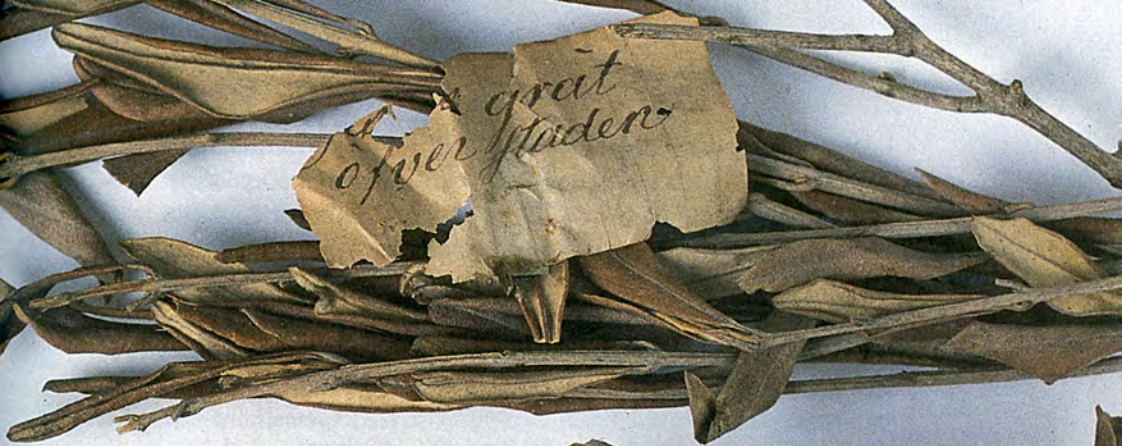 gråt
öfver staden